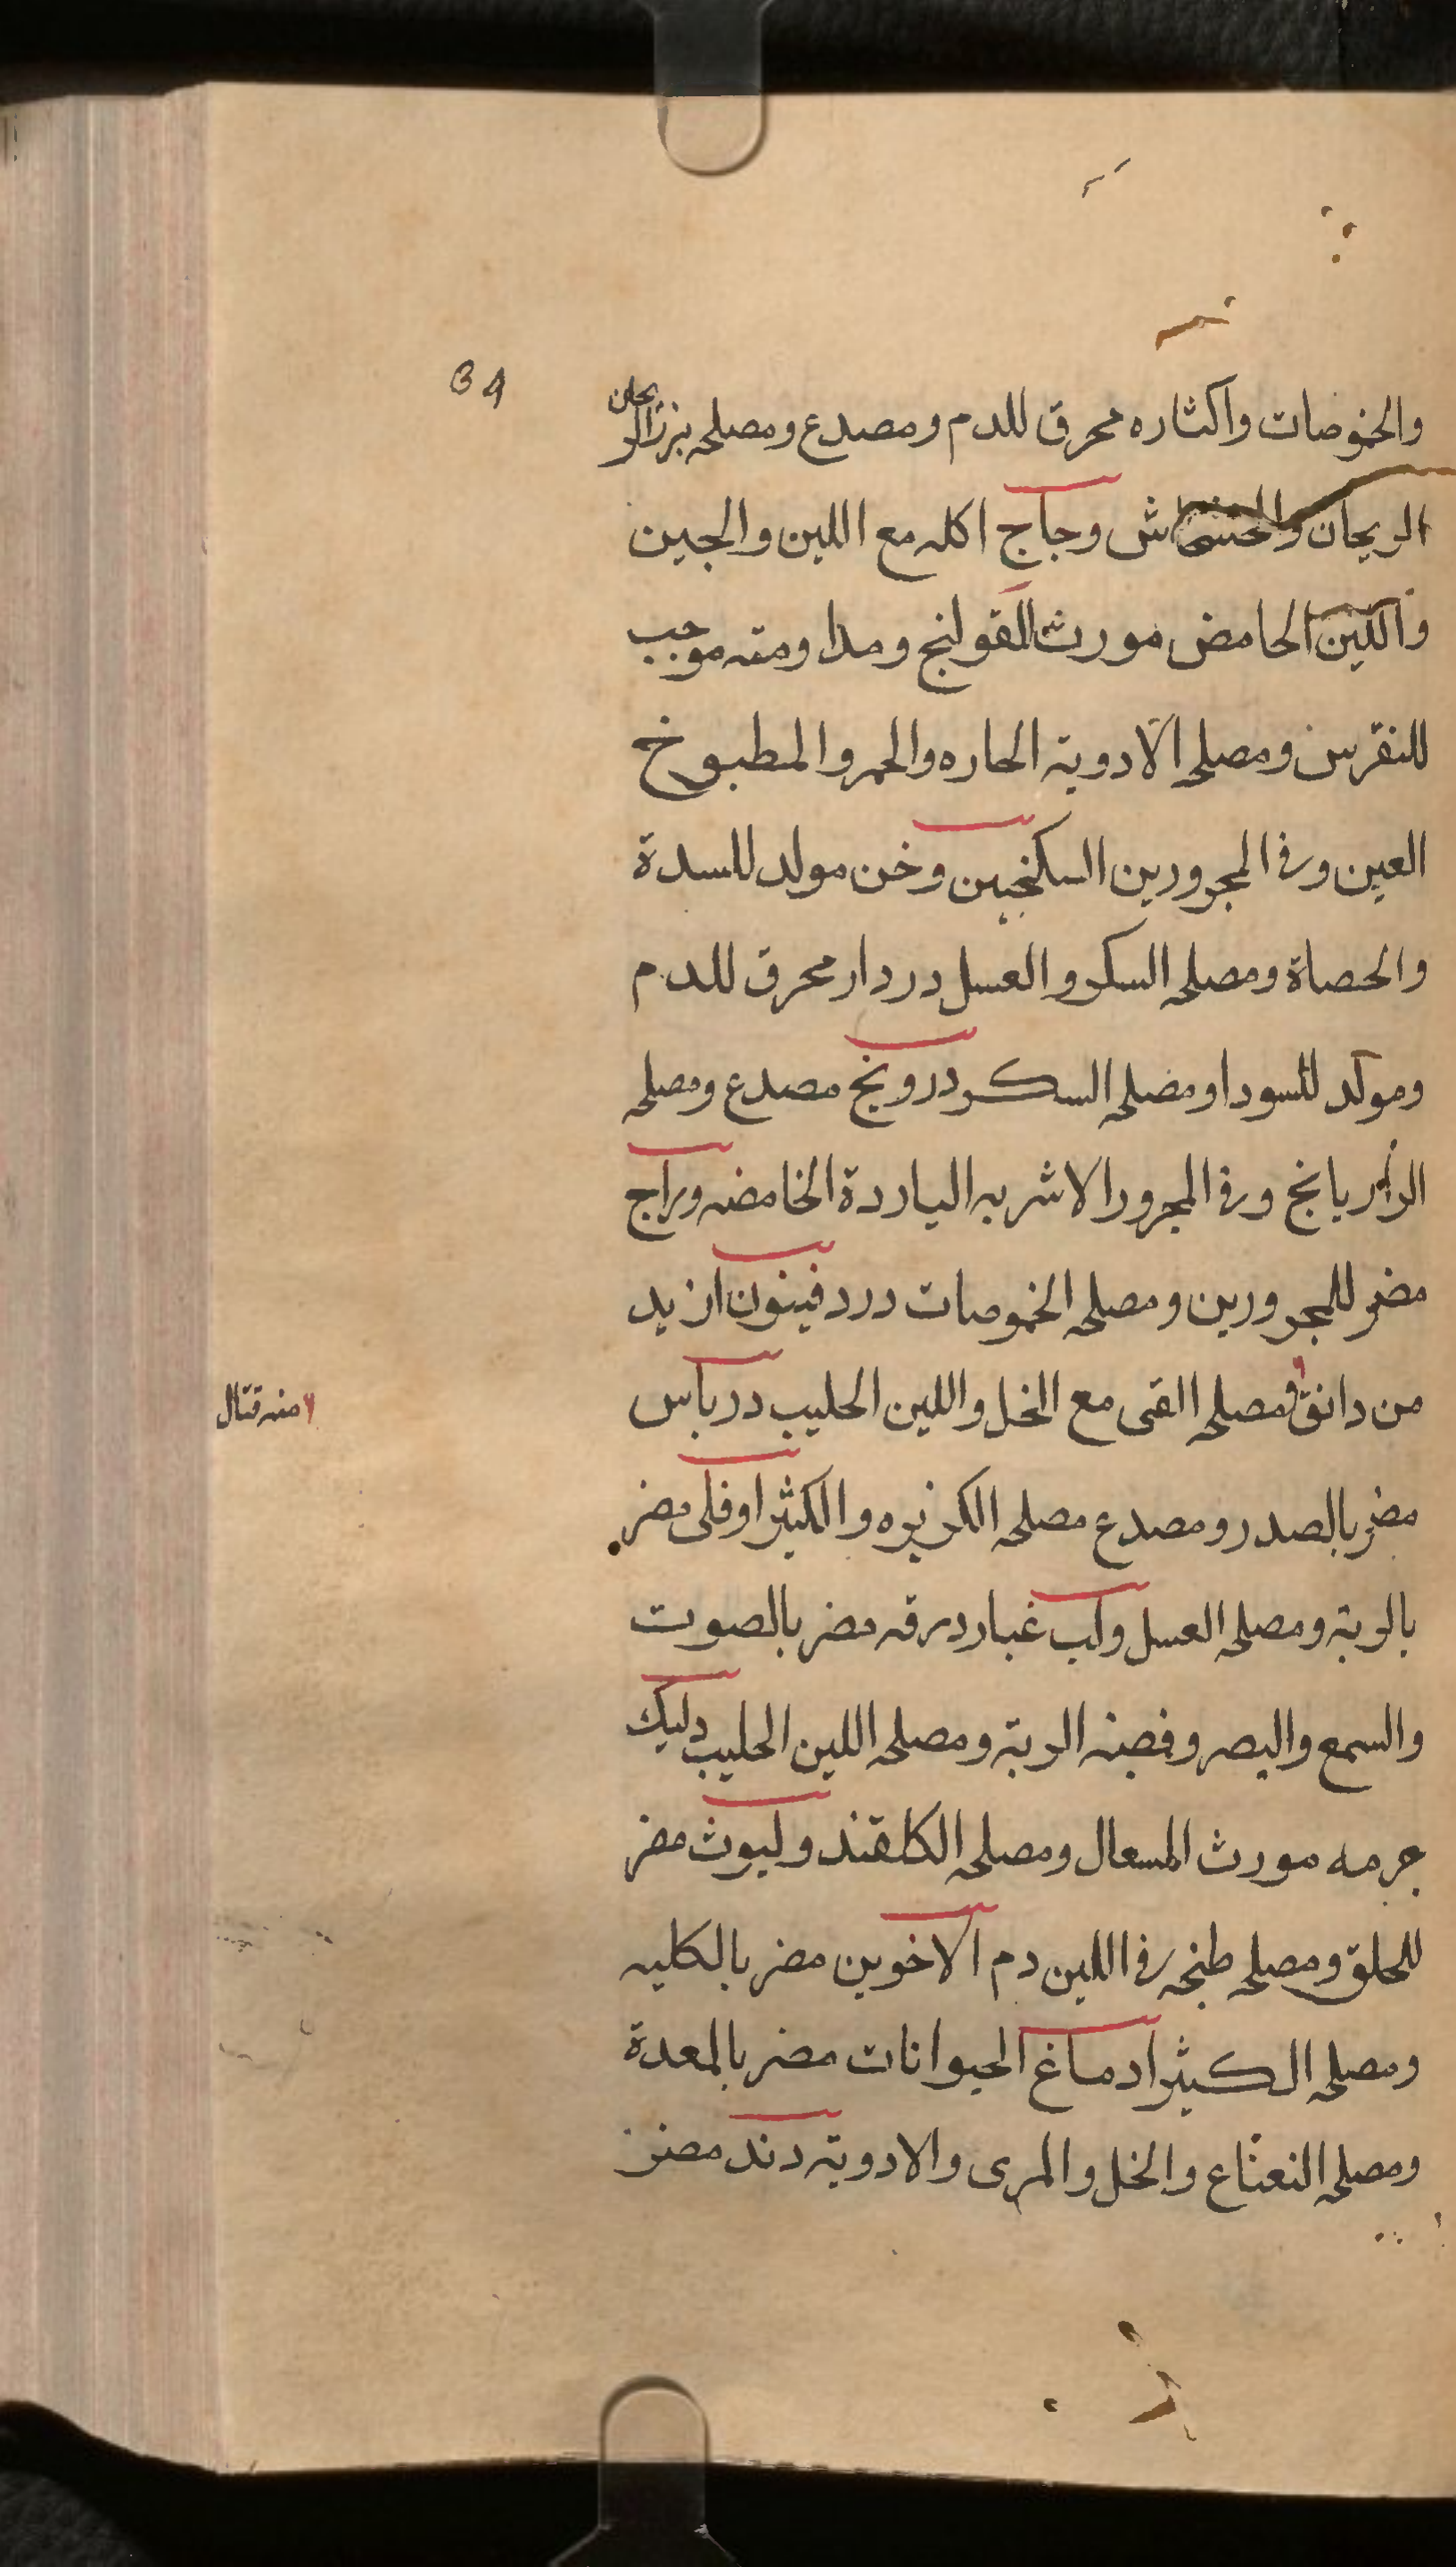 34
والخموضات واكثاره محرق للدم ومصدع ومصلحه بزرالريحان
الريحان والخشخاش وجاج اكله مع اللبن والجبن
واللبن الحامض مورث القولنج ومداومته موجب
للنقرس ومصلحه الادوية الحاره والخمر والمطبوخ
العين وفى المحرورين السكنجبين وخن مولد للسدة
والحصاة ومصلحه السكر والعسل دردار محرق للدم
ومولد للسودا ومصلحه السكر درونج مصدع ومصلحه
الرازيانج وفى المحرور الاشربه الباردة الخامضه وراج
مضر للمحرورين ومصلحه الخموصات دردفينون ازيد
من دانق ومصلحه القى مع الخل واللبن الحليب درباس
منه قتال
مضر بالصدر ومصدع مصلحه الكزبره والكثيرا وفلى مضر
بالرية ومصلحه العسل ولب غبار درقه مضر بالصوت
والسمع والبصر وقصبة الرية ومصلحه اللبن الحليب دليك
جرمه مورث السعال ومصلحه الكلقند ولبوث مضر
للحلق ومصلحه طبخه فى اللبن دم الاخوين مضر بالكليه
ومصلحه الكثيرا دماغ الحيوانات مضر بالمعدة
ومصلحه النعناع والخل والمرى والادوية دند مضر